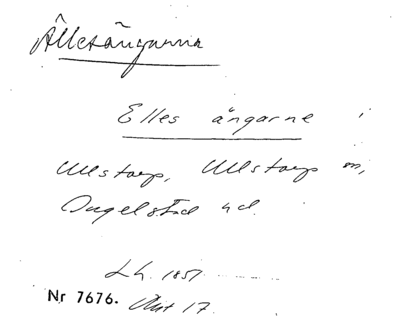 Älletsängarna
Elles ängarne i
Ullstorp, Ullstorp sn,
Ingelstad hd.
Lh. 1851
Nr 7676. Akt 17.